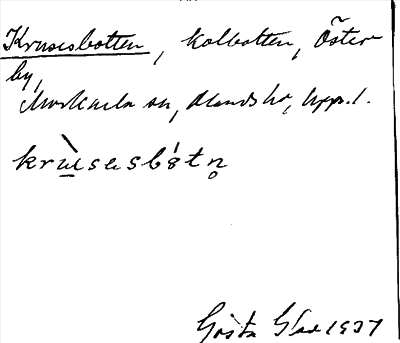 Krusesbotten, kolbotten, Öster-
by,
Morkarla sn, Olands hd, Uppl.
krusesbòtn̥
Gösta 1937